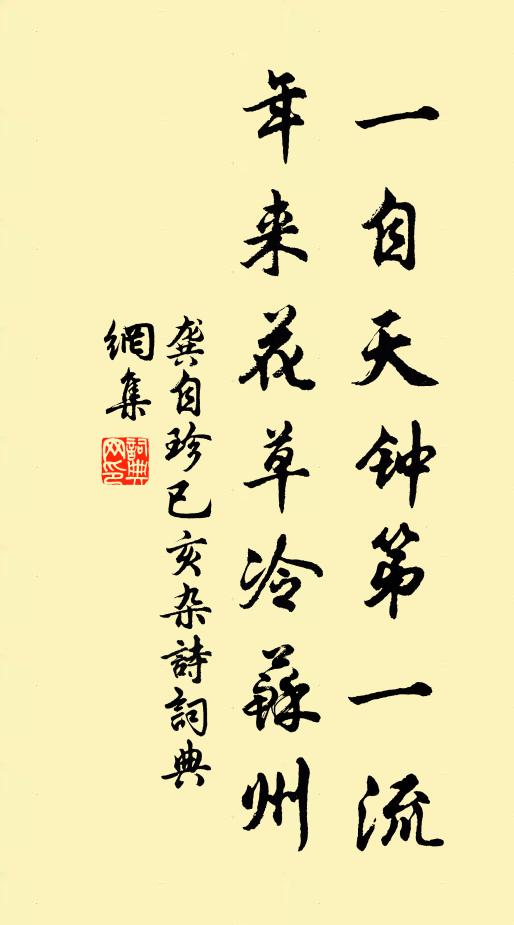 一自天钟第一流
年来花草冷蘇州
龚自珍已亥杂詩詞典
網集
詞典
网印